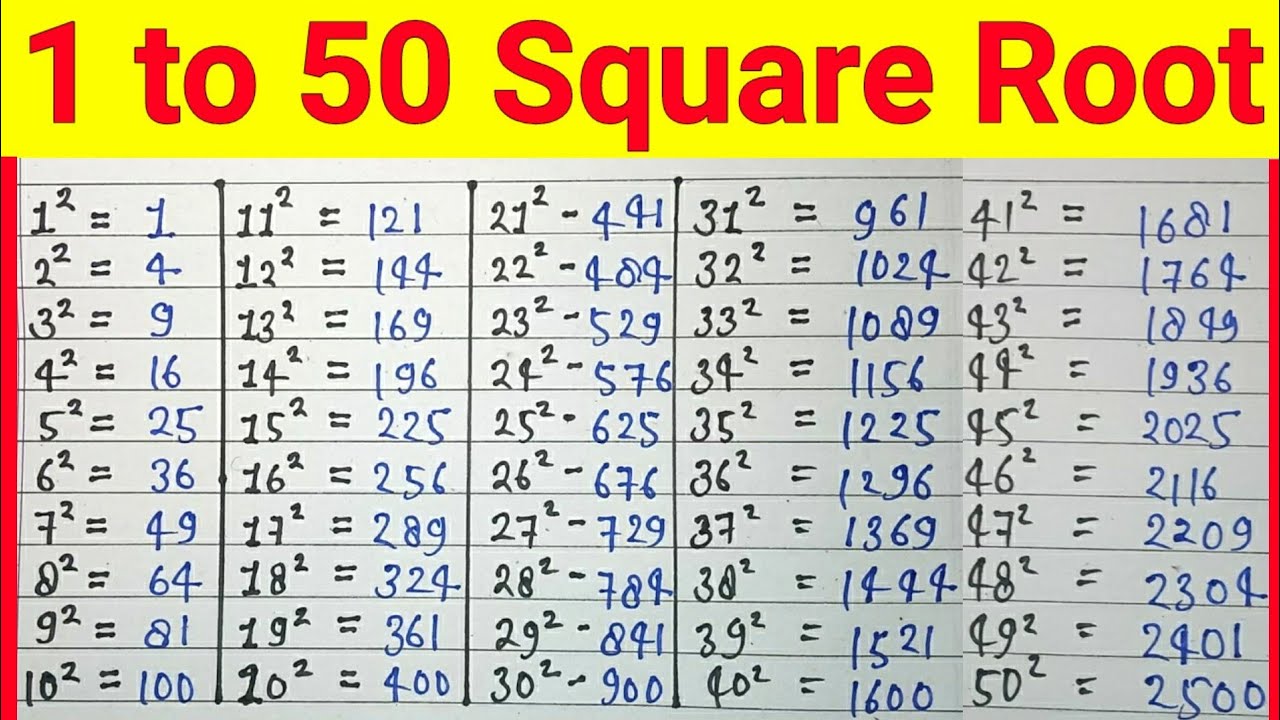 1 to 50 Square Root
1² = 1
2² = 4
3² = 9
4² = 16
5² = 25
6² = 36
7² = 49
8² = 64
9² = 81
10² = 100
11² = 121
12² = 144
13² = 169
14² = 196
15² = 225
16² = 256
17² = 289
18² = 324
19² = 361
20² = 400
21² - 441
22² - 484
23² - 529
24² - 576
25² - 625
26² - 676
27² - 729
28² - 784
29² - 841
30² - 900
31² = 961
32² = 1024
33² = 1089
34² = 1156
35² = 1225
36² = 1296
37² = 1369
38² = 1444
39² = 1521
40² = 1600
41² = 1681
42² = 1764
43² = 1849
44² = 1936
45² = 2025
46² = 2116
47² = 2209
48² = 2304
49² = 2401
50² = 2500